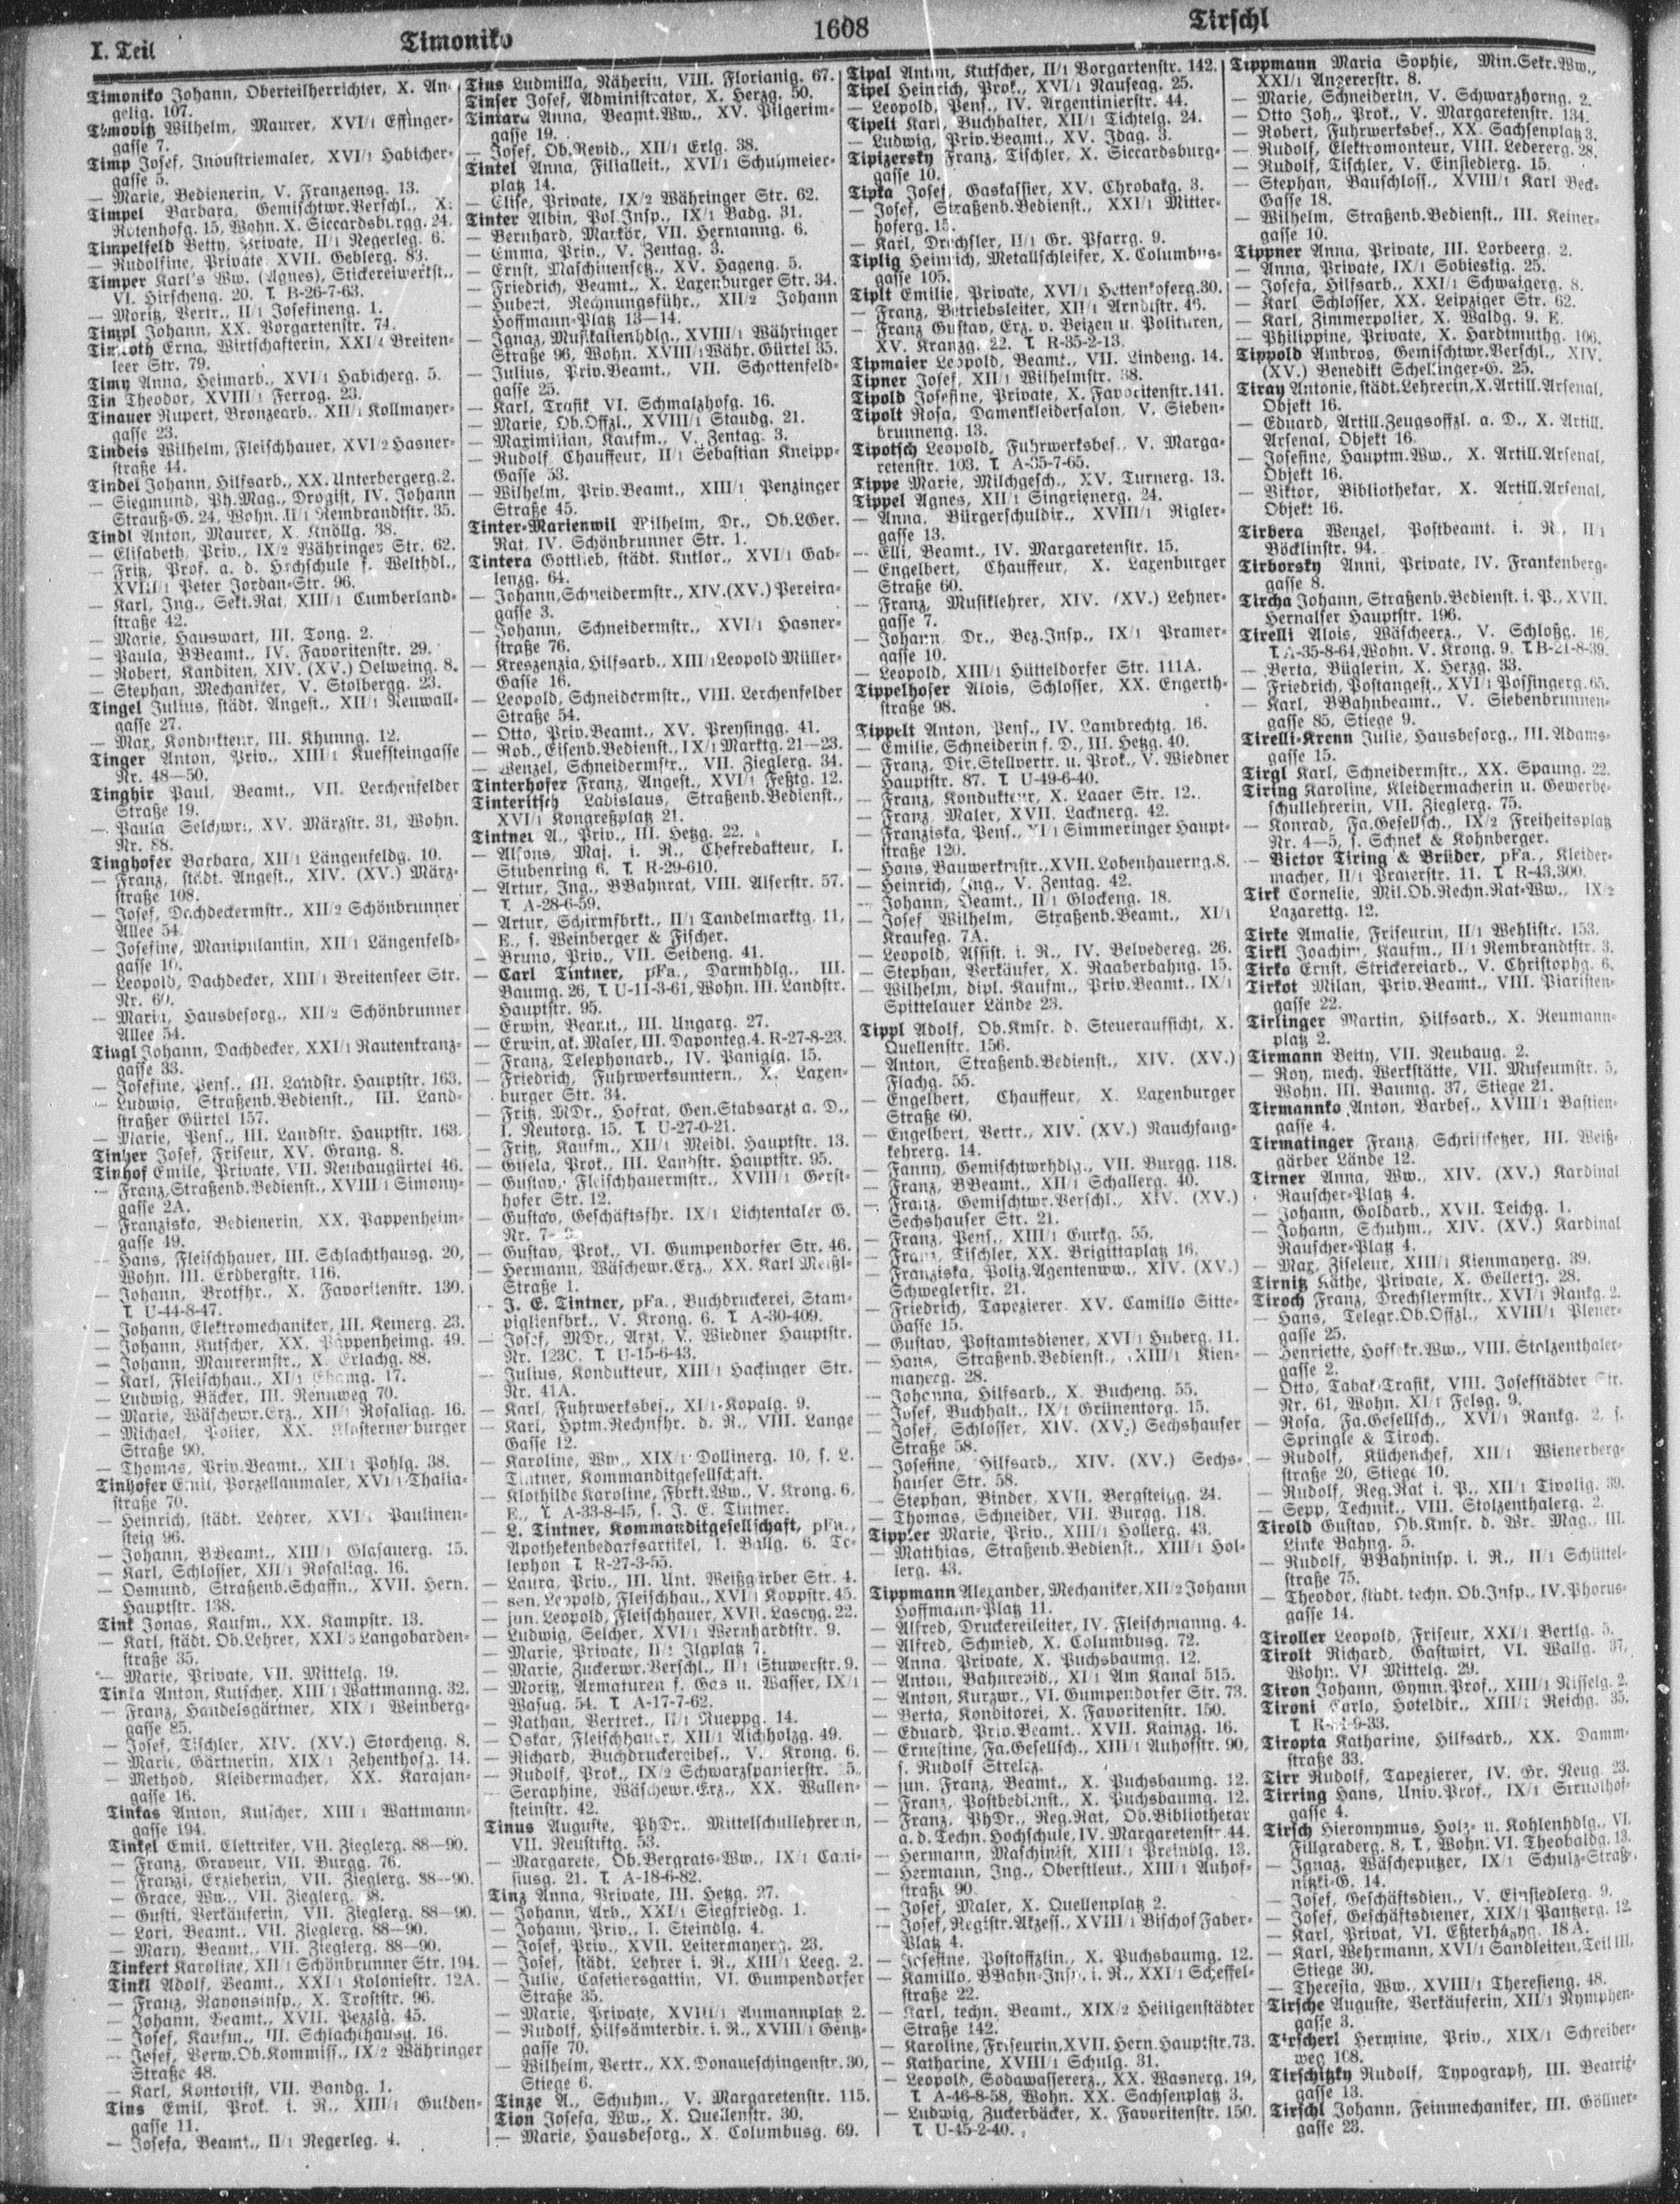 I. Teil
Timoniko
1608
Tirschl
Timoniko Johann, Oberteilherrichter, X. An-
gelig. 107.
Timovitz Wilhelm, Maurer, XVI/1 Effinger-
gasse 7.
Timp Josef, Industriemaler, XVI/1 Habicher-
gasse 5.
— Marie, Bedienerin, V. Franzensg. 13.
Timpel Barbara, Gemischtwr.Verschl., X.
Rotenhofg. 15, Wohn. X. Siccardsburgg. 24.
Timpelfeld Betty, Private, II/1 Negerleg. 6.
— Rudolfine, Private XVII. Geblerg. 83.
Timper Karl's Ww. (Agnes), Stickereiwerkst.,
VI. Hirscheng. 20. T. B-26-7-63.
— Moritz, Vertr., II/1 Josefineng. 1.
Timpl Johann, XX. Vorgartenstr. 74.
Erna, Wirtschafterin, XXI/4 Breiten-
leer Str. 79.
Timy Anna, Heimarb., XVI/1 Habicherg. 5.
Tin Theodor, XVIII/1 Ferrog. 23.
Tinauer Rupert, Bronzearb., XII/1 Kollmayer-
gasse 23.
Tindeis Wilhelm, Fleischhauer, XVI/2 Hasner-
straße 44.
Tindel Johann, Hilfsarb., XX. Unterbergerg. 2.
— Siegmund, Ph.Mag., Drogist, IV. Johann
Strauß-G. 24, Wohn. II/1 Rembrandtstr. 35.
Tindl Anton, Maurer, X. Knöllg. 38.
— Elisabeth, Priv., IX/2 Währinger Str. 62.
— Fritz, Prof. a. d. Hochschule f. Welthdl.,
XVIII/1 Peter Jordan-Str. 96.
— Karl, Ing., Sekt.Rat, XIII/1 Cumberland-
straße 42.
— Marie, Hauswart, III. Tong. 2.
— Paula, BBeamt., IV. Favoritenstr. 29.
— Robert, Kanditen, XIV. (XV.) Oelweing. 8.
— Stephan, Mechaniker, V. Stolbergg. 23.
Tingel Julius, städt. Angest., XII/1 Neuwall-
gasse 27.
— Max, Kondukteur, III. Khunng. 12.
Tinger Anton, Priv., XIII/1 Kuefsteingasse
Nr. 48—50.
Tinghir Paul, Beamt., VII. Lerchenfelder
Straße 19.
— Paula Selchwr., XV. Märzstr. 31, Wohn.
Nr. 88.
Tinghofer Barbara, XII/1 Längenfeldg. 10.
— Franz, städt. Angest., XIV. (XV.) März-
straße 108.
— Josef, Dachdeckermstr., XII/2 Schönbrunner
Allee 54.
— Josefine, Manipulantin, XII/1 Längenfeld-
gasse 10.
— Leopold, Dachdecker, XIII/1 Breitenseer Str.
Nr. 60.
— Maria, Hausbesorg., XII/2 Schönbrunner
Allee 54.
Tingl Johann, Dachdecker, XXI/1 Rautenkranz-
gasse 33.
— Josefine, Pens., III. Landstr. Hauptstr. 163.
— Ludwig, Straßenb.Bedienst., III. Land-
straßer Gürtel 157.
— Marie, Pens., III. Landstr. Hauptstr. 163.
Josef, Friseur, XV. Grang. 8.
Tinhof Emile, Private, VII. Neubaugürtel 46.
— Franz, Straßenb.Bedienst., XVIII/1 Simony-
gasse 2A.
— Franziska, Bedienerin, XX. Pappenheim-
gasse 49.
— Hans, Fleischhauer, III. Schlachthausg. 20,
Wohn. III. Erdbergstr. 116.
— Johann, Brotfhr., X. Favoritenstr. 130.
T. U-44-8-47.
— Johann, Elektromechaniker, III. Keinerg. 23.
— Johann, Kutscher, XX. Pappenheimg. 49.
— Johann, Maurermstr., X. Erlachg. 88.
— Karl, Fleischhau., XI/1 Ehamg. 17.
— Ludwig, Bäcker, III. Rennweg 70.
— Marie, Wäschewr.Erz., XII/1 Rosaliag. 16.
— Michael, Polier, XX. Klosterneuburger
Straße 90.
— Thomas, Priv.Beamt., XII/1 Pohlg. 38.
Tinhofer Emil, Porzellanmaler, XVI/1 Thalia-
straße 70.
— Heinrich, städt. Lehrer, XVI/1 Paulinen-
steig 96.
— Johann, BBeamt., XIII/1 Glasauerg. 15.
— Karl, Schlosser, XII/1 Rosaliag. 16.
— Osmund, Straßenb.Schaffn., XVII. Hern.
Hauptstr. 138.
Tink Jonas, Kaufm., XX. Kampstr. 13.
— Karl, städt. Ob.Lehrer, XXI/5 Langobarden-
straße 35.
— Marie, Private, VII. Mittelg. 19.
Tinka Anton, Kutscher, XIII/1 Wattmanng. 32.
— Franz, Handelsgärtner, XIX/1 Weinberg-
gasse 85.
— Josef, Tischler, XIV. (XV.) Storcheng. 8.
— Marie, Gärtnerin, XIX/1 Zehenthofg. 14.
— Method, Kleidermacher, XX. Karajan-
gasse 16.
Tinkas Anton, Kutscher, XIII/1 Wattmann-
gasse 194.
Tinkel Emil, Elektriker, VII. Zieglerg. 88—90.
— Franz, Graveur, VII. Burgg. 76.
— Franzi, Erzieherin, VII. Zieglerg. 88—90.
— Grace, Ww., VII. Zieglerg. 88.
— Gusti, Verkäuferin, VII. Zieglerg. 88—90.
— Lori, Beamt., VII. Zieglerg. 88—90.
— Mary, Beamt., VII. Zieglerg. 88—90.
Tinkert Karoline, XII/1 Schönbrunner Str. 194.
Tinkl Adolf, Beamt., XXI/1 Koloniestr. 12A.
— Franz, Rayonsinsp., X. Troststr. 96.
— Johann, Beamt., XVII. Pezzlg. 45.
— Josef, Kaufm., III. Schlachthausg. 16.
— Josef, Verw.Ob.Kommiss., IX/2 Währinger
Straße 48.
— Karl, Kontorist, VII. Bandg. 1.
Tins Emil, Prok. i. R., XIII/1 Gulden-
gasse 11.
— Josefa, Beamt., II/1 Negerleg. 4.
Tins Ludmilla, Näherin, VIII. Florianig. 67.
Tinser Josef, Administrator, X. Herzg. 50.
Tintara Anna, Beamt.Ww., XV. Pilgerim-
gasse 19.
— Josef, Ob.Revid., XII/1 Erlg. 38.
Tintel Anna, Filialleit., XVI/1 Schuhmeier-
platz 14.
— Elise, Private, IX/2 Währinger Str. 62.
Tinter Albin, Pol.Insp., IX/1 Badg. 31.
— Bernhard, Markör, VII. Hermanng. 6.
— Emma, Priv., V. Zentag. 3.
— Ernst, Maschinensetz., XV. Hageng. 5.
— Friedrich, Beamt., X. Laxenburger Str. 34.
— Hubert, Rechnungsführ., XII/2 Johann
Hoffmann-Platz 13—14.
— Ignaz, Musikalienhdlg., XVIII/1 Währinger
Straße 96, Wohn. XVIII/1 Währ. Gürtel 35.
— Julius, Priv.Beamt., VII. Schottenfeld-
gasse 25.
— Karl, Trafik VI. Schmalzhofg. 16.
— Marie, Ob.Offzl., XVIII/1 Staudg. 21.
— Maximilian, Kaufm., V. Zentag. 3.
— Rudolf Chauffeur, II/1 Sebastian Kneipp-
Gasse 53.
— Wilhelm, Priv.Beamt., XIII/1 Penzinger
Straße 45.
Tinter-Marienwil Wilhelm, Dr., Ob.LGer.
Rat, IV. Schönbrunner Str. 1.
Tintera Gottlieb, städt. Kntlor., XVI/1 Gab-
lenzg. 64.
— Johann, Schneidermstr., XIV. (XV.) Pereira-
gasse 3.
— Johann, Schneidermstr., XVI/1 Hasner-
straße 76.
— Kreszenzia, Hilfsarb., XIII/1 Leopold Müller-
Gasse 16.
— Leopold, Schneidermstr., VIII. Lerchenfelder
Straße 54.
— Otto, Priv.Beamt., XV. Preysingg. 41.
— Rob., Eisenb.Bedienst., IX/1 Marktg. 21—23.
— Wenzel, Schneidermstr., VII. Zieglerg. 34.
Tinterhofer Franz, Angest., XVI/1 Feßtg. 12.
Tinteritsch Ladislaus, Straßenb.Bedienst.,
XVI/1 Kongreßplatz 21.
Tintner A., Priv., III. Hetzg. 22.
— Alfons, Maj. i. R., Chefredakteur, I.
Stubenring 6. T. R-29-610.
— Artur, Ing., BBahnrat, VIII. Alserstr. 57.
T. A-28-6-59.
— Artur, Schirmfbrkt., II/1 Tandelmarktg. 11,
E., s. Weinberger & Fischer.
— Bruno, Priv., VII. Seideng. 41.
— Carl Tintner, pFa., Darmhdlg., III.
Baumg. 26, T. U-11-3-61, Wohn. III. Landstr.
Hauptstr. 95.
— Erwin, Beamt., III. Ungarg. 27.
— Erwin, ak. Maler, III. Daponteg. 4. R-27-8-23.
— Franz, Telephonarb., IV. Paniglg. 15.
— Friedrich, Fuhrwerksuntern., X. Laxen-
burger Str. 34.
— Fritz, MDr., Hofrat, Gen.Stabsarzt a. D.,
I. Neutorg. 15. T. U-27-0-21.
— Fritz, Kaufm., XII/1 Meidl. Hauptstr. 13.
— Gisela, Prok., III. Landstr. Hauptstr. 95.
— Gustav, Fleischhauermstr., XVIII/1 Gerst-
hofer Str. 12.
— Gustav, Geschäftsfhr. IX/1 Lichtentaler G.
Nr. 7—
— Gustav, Prok., VI. Gumpendorfer Str. 46.
— Hermann, Wäschewr.Erz., XX. Karl Meißl-
Straße 1.
— J. E. Tintner, pFa., Buchdruckerei, Stam-
piglienfbrk., V. Krong. 6. T. A-30-409.
— Josef, MDr., Arzt, V. Wiedner Hauptstr.
Nr. 123C. T. U-15-6-43.
— Julius, Kondukteur, XIII/1 Hackinger Str.
Nr. 41A.
— Karl, Fuhrwerksbes., XI/1 Kopalg. 9.
— Karl, Hptm.Rechnfhr. d. R., VIII. Lange
Gasse 12.
— Karoline, Ww., XIX/1 Dollinerg. 10, s. L.
Tintner, Kommanditgesellschaft.
— Klothilde Karoline, Fbrkt.Ww., V. Krong. 6,
E., T. A-33-8-45, s. J. E. Tintner.
— L. Tintner, Kommanditgesellschaft, pFa.,
Apothekenbedarfsartikel, I. Ballg. 6. Te-
lephon T. R-27-3-55.
— Laura, Priv., III. Unt. Weißgärber Str. 4.
— sen. Leopold, Fleischhau., XVI/1 Koppstr. 45.
— jun. Leopold, Fleischhauer, XVII. Lascyg. 22.
— Ludwig, Selcher, XVI/1 Wernhardtstr. 9.
— Marie, Private, II/2 Ilgplatz 7.
— Marie, Zuckerwr.Verschl., II/1 Stuwerstr. 9.
— Moritz, Armaturen f. Gas u. Wasser, IX/1
Wasag. 54. T. A-17-7-62.
— Nathan, Vertret., II/1 Rueppg. 14.
— Oskar, Fleischhauer, XII/1 Aichholzg. 49.
— Richard, Buchdruckereibes., V. Krong. 6.
— Rudolf, Prok., IX/2 Schwarzspanierstr.
— Seraphine, Wäschewr.Erz., XX. Wallen-
steinstr. 42.
Tinus Auguste, PhDr., Mittelschullehrerin,
VII. Neustiftg. 53.
— Margarete, Ob.Bergrats-Ww., IX/1 Cani-
siusg. 21. T. A-18-6-82.
Tinz Anna, Private, III. Hetzg. 27.
— Johann, Arb., XXI/1 Siegfriedg. 1.
— Johann, Priv., I. Steindlg. 4.
— Josef, Priv., XVII. Leitermayerg. 23.
— Josef, städt. Lehrer i. R., XIII/1 Leeg. 2.
— Julie, Cafetiersgattin, VI. Gumpendorfer
Straße 35.
— Marie, Private, XVIII/1 Aumannplatz 2.
— Rudolf, Hilfsämterdir. i. R., XVIII/1 Gentz-
gasse 70.
— Wilhelm, Vertr., XX. Donaueschingenstr. 30,
Stiege 6.
Tinze A., Schuhm., V. Margaretenstr. 115.
Tion Josefa, Ww., X. Quellenstr. 30.
— Marie, Hausbesorg., X. Columbusg. 69.
Tipal Anton, Kutscher, II/1 Vorgartenstr. 142.
Tipel Heinrich, Prok., XVI/1 Nauseag. 25.
— Leopold, Pens., IV. Argentinierstr. 44.
Tipelt Karl, Buchhalter, XII/1 Tichtelg. 24.
— Ludwig, Priv.Beamt., XV. Idag. 3.
Tipizersky Franz, Tischler, X. Siccardsburg-
gasse 10.
Tipka Josef, Gaskassier, XV. Chrobakg. 3.
— Josef, Straßenb.Bedienst., XXI/1 Mitter-
hoferg. 15.
— Karl, Drechsler, II/1 Gr. Pfarrg. 9.
Tiplig Heinrich, Metallschleifer, X. Columbus-
gasse 105.
Tiplt Emilie, Private, XVI/1 Hettenkoferg. 30.
— Franz, Betriebsleiter, XII/1 Arndtstr. 46.
— Franz Gustav, Erz. v. Beizen u. Polituren,
XV. Kranzg. 22. T. R-35-2-13.
Tipmaier Leopold, Beamt., VII. Lindeng. 14.
Tipner Josef, XII/1 Wilhelmstr. 38.
Tipold Josefine, Private, X. Favoritenstr. 141.
Tipolt Rosa, Damenkleidersalon, V. Sieben-
brunneng. 13.
Tipotsch Leopold, Fuhrwerksbes., V. Marga-
retenstr. 103. T. A-35-7-65.
Tippe Marie, Milchgesch., XV. Turnerg. 13.
Tippel Agnes, XII/1 Singrienerg. 24.
— Anna, Bürgerschuldir., XVIII/1 Rigler-
gasse 13.
— Elli, Beamt., IV. Margaretenstr. 15.
— Engelbert, Chauffeur, X. Laxenburger
Straße 60.
— Franz, Musiklehrer, XIV. (XV.) Lehner-
gasse 7.
— Johann Dr., Bez.Insp., IX/1 Pramer-
gasse 10.
— Leopold, XIII/1 Hütteldorfer Str. 111A.
Tippelhofer Alois, Schlosser, XX. Engerth-
straße 98.
Tippelt Anton, Pens., IV. Lambrechtg. 16.
— Emilie, Schneiderin f. D., III. Hetzg. 40.
— Franz, Dir.Stellvertr. u. Prok., V. Wiedner
Hauptstr. 87. T. U-49-6-40.
— Franz, Kondukteur, X. Laaer Str. 12.
— Franz, Maler, XVII. Lacknerg. 42.
— Franziska, Pens., XI/1 Simmeringer Haupt-
straße 120.
— Hans, Bauwerkmstr., XVII. Lobenhauerng. 8.
— Heinrich, Ing., V. Zentag. 42.
— Johann, Beamt., II/1 Glockeng. 18.
— Josef Wilhelm, Straßenb.Beamt., XI/1
Krauseg. 7A.
— Leopold, Assist. i. R., IV. Belvedereg. 26.
— Stephan, Verkäufer, X. Raaberbahng. 15.
— Wilhelm, dipl. Kaufm., Priv.Beamt., IX/1
Spittelauer Lände 23.
Tippl Adolf, Ob.Kmsr. d. Steueraufsicht, X.
Quellenstr. 156.
— Anton, Straßenb.Bedienst., XIV. (XV.)
Flachg. 55.
— Engelbert, Chauffeur, X. Laxenburger
Straße 60.
— Engelbert, Vertr., XIV. (XV.) Rauchfang-
kehrerg. 14.
— Fanny, Gemischtwrhdlg., VII. Burgg. 118.
— Franz, BBeamt., XII/1 Schallerg. 40.
— Franz, Gemischtwr.Verschl., XIV. (XV.)
Sechshauser Str. 21.
— Franz, Pens., XIII/1 Gurkg. 55.
— Franz, Tischler, XX. Brigittaplatz 16.
— Franziska, Poliz.Agentenww., XIV. (XV.)
Schweglerstr. 21.
— Friedrich, Tapezierer XV. Camillo Sitte-
Gasse 15.
— Gustav, Postamtsdiener, XVI/1 Huberg. 11.
— Hans, Straßenb.Bedienst., XIII/1 Kien-
mayerg. 28.
— Johanna, Hilfsarb., X. Bucheng. 55.
— Josef, Buchhalt., IX/1 Grünentorg. 15.
— Josef, Schlosser, XIV. (XV.) Sechshauser
Straße 58.
— Josefine, Hilfsarb., XIV. (XV.) Sechs-
hauser Str. 58.
— Stephan, Binder, XVII. Bergsteigg. 24.
— Thomas, Schneider, VII. Burgg. 118.
Tippler Marie, Priv., XIII/1 Hollerg. 43.
— Matthias, Straßenb.Bedienst., XIII/1 Hol-
lerg. 43.
Tippmann Alexander, Mechaniker, XII/2 Johann
Hoffmann-Platz 11.
— Alfred, Druckereileiter, IV. Fleischmanng. 4.
— Alfred, Schmied, X. Columbusg. 72.
— Anna, Private, X. Puchsbaumg. 12.
— Anton, Bahnrevid., XI/1 Am Kanal 515.
— Anton, Kurzwr., VI. Gumpendorfer Str. 73.
— Berta, Konditorei, X. Favoritenstr. 150.
— Eduard, Priv.Beamt., XVII. Kainzg. 16.
— Ernestine, Fa.Gesellsch., XIII/1 Auhofstr. 90,
s. Rudolf Strelez.
— jun. Franz, Beamt., X. Puchsbaumg. 12.
— Franz, Postbedienst., X. Puchsbaumg. 12.
— Franz, PhDr., Reg.Rat, Ob.Bibliothekar
a. d. Techn. Hochschule, IV. Margaretenstr. 44.
— Hermann, Maschinist, XIII/1 Preindlg. 13.
— Hermann, Ing., Oberstleut., XIII/1 Auhof-
straße 90
— Josef, Maler, X. Quellenplatz 2.
— Josef, Registr.Akzess., XVIII/1 Bischof Faber-
Platz 4.
— Josefine, Postoffzlin., X. Puchsbaumg. 12.
— Kamillo, BBahn-Insp. i. R., XXI/1 Scheffel-
straße 22.
— Karl, techn. Beamt., XIX/2 Heiligenstädter
Straße 142.
— Karoline, Friseurin, XVII. Hern. Hauptstr. 73.
— Katharine, XVIII/1 Schulg. 31.
— Leopold, Sodawassererz., XX. Wasnerg. 19,
T. A-46-8-58, Wohn. XX. Sachsenplatz 3.
— Ludwig, Zuckerbäcker, X. Favoritenstr. 150.
T. U-45-2-40.
Tippmann Maria Sophie, Min.Sekr.Ww.,
XXI/1 Anzererstr. 8.
— Marie, Schneiderin, V. Schwarzhorng. 2.
— Otto Joh., Prok., V. Margaretenstr. 134.
— Robert, Fuhrwerksbes., XX. Sachsenplatz 3.
— Rudolf, Elektromonteur, VIII. Ledererg. 28.
— Rudolf, Tischler, V. Einsiedlerg. 15.
— Stephan, Bauschloss., XVIII/1 Karl Beck-
Gasse 18.
— Wilhelm, Straßenb.Bedienst., III. Keiner-
gasse 10.
Tippner Anna, Private, III. Lorbeerg. 2.
— Anna, Private, IX/1 Sobieskig. 25.
— Josefa, Hilfsarb., XXI/1 Schwaigerg. 8.
— Karl Schlosser, XX. Leipziger Str. 62.
— Karl, Zimmerpolier, X. Waldg. 9. E.
— Philippine, Private, X. Hardtmuthg. 106.
Tippold Ambros, Gemischtwr.Verschl., XIV.
(XV.) Benedikt Schellinger-G. 25.
Tiray Antonie, städt. Lehrerin, X. Artill.Arsenal,
Objekt 16.
— Eduard, Artill.Zeugsoffzl. a. D., X. Artill.
Arsenal, Objekt 16.
— Josefine, Hauptm.Ww., X. Artill.Arsenal,
Objekt 16.
— Viktor, Bibliothekar, X. Artill.Arsenal,
Objekt 16.
Tirbera Wenzel, Postbeamt. i. R., II/1
Böcklinstr. 94.
Tirborsky Anni, Private, IV. Frankenberg-
gasse 8.
Tircha Johann, Straßenb.Bedienst. i. P., XVII.
Hernalser Hauptstr. 196.
Tirelli Alois, Wäscheerz., V. Schloßg. 16,
T. A-35-8-64, Wohn. V. Krong. 9. T. B-21-8-39.
— Berta, Büglerin, X. Herzg. 33.
— Friedrich, Postangest., XVI/1 Possingerg. 65.
— Karl, BBahnbeamt., V. Siebenbrunnen-
gasse 85, Stiege 9.
Tirelli-Krenn Julie, Hausbesorg., III. Adams-
gasse 15.
Tirgl Karl, Schneidermstr., XX. Spaung. 22.
Tiring Karoline, Kleidermacherin u. Gewerbe-
schullehrerin, VII. Zieglerg. 75.
— Konrad, Fa.Gesellsch., IX/2 Freiheitsplatz
Nr. 4—5, s. Schnek & Kohnberger.
— Victor Tiring & Brüder, pFa., Kleider-
macher, II/1 Praterstr. 11. T. R-43.300.
Tirk Cornelie, Mil.Ob.Rechn.Rat-Ww., IX/2
Lazarettg. 12.
Tirke Amalie, Friseurin, II/1 Wehlistr. 153.
Tirkl Joachim, Kaufm., II/1 Rembrandtstr. 3.
Tirko Ernst, Strickereiarb., V. Christophg. 6.
Tirkot Milan, Priv.Beamt., VIII. Piaristen-
gasse 22.
Tirlinger Martin, Hilfsarb., X. Neumann-
platz 2.
Tirmann Betty, VII. Neubaug. 2.
— Roy, mech. Werkstätte, VII. Museumstr. 5,
Wohn. III. Baumg. 37, Stiege 21.
Tirmannko Anton, Barbes., XVIII/1 Bastien-
gasse 4.
Tirmatinger Franz, Schriftsetzer, III. Weiß-
gärber Lände 12.
Tirner Anna, Ww., XIV. (XV.) Kardinal
Rauscher-Platz 4.
— Johann, Goldarb., XVII. Teichg. 1.
— Johann, Schuhm., XIV. (XV.) Kardinal
Rauscher-Platz 4.
— Max, Ziseleur, XIII/1 Kienmayerg. 39.
Tirnitz Käthe, Private, X. Gellertg. 28.
Tiroch Franz, Drechslermstr., XVI/1 Rankg. 2.
— Hans, Telegr.Ob.Offzl., XVIII/1 Plener-
gasse 25.
— Henriette, Hofsekr.Ww., VIII. Stolzenthaler-
gasse 2.
— Otto, Tabak-Trafik, VIII. Josefstädter Str.
Nr. 61, Wohn. XI/1 Felsg. 9.
— Rosa, Fa.Gesellsch., XVI/1 Rankg. 2, s.
Springle & Tiroch.
— Rudolf, Küchenchef, XII/1 Wienerberg-
straße 20, Stiege 10.
— Rudolf, Reg.Rat i. P., XII/1 Tivolig. 39.
— Sepp, Technik., VIII. Stolzenthalerg. 2.
Tirold Gustav, Ob.Kmsr. d. Wr. Mag., III.
Linke Bahng. 5.
— Rudolf, BBahninsp. i. R., II/1 Schüttel-
straße 75.
— Theodor, städt. techn. Ob.Insp., IV. Phorus-
gasse 14.
Tiroller Leopold, Friseur, XXI/1 Bertlg. 5.
Tirolt Richard, Gastwirt, VI. Wallg. 37,
Wohn. VI. Mittelg. 29.
Tiron Johann, Gymn.Prof., XIII/1 Nisselg. 2.
Tironi Carlo, Hoteldir., XIII/1 Reichg. 35.
Tiropta Katharine, Hilfsarb., XX. Damm-
straße 33.
Tirr Rudolf, Tapezierer, IV. Gr. Neug. 23.
Tirring Hans, Univ.Prof., IX/1 Strudlhof-
gasse 4.
Tirsch Hieronymus, Holz- u. Kohlenhdlg., VI.
Fillgraderg. 8, T., Wohn. VI. Theobaldg. 13.
— Ignaz, Wäscheputzer, IX/1 Schulz-Straß-
nitzki-G. 14.
— Josef, Geschäftsdien., V. Einsiedlerg. 9.
— Josef, Geschäftsdiener, XIX/1 Pantzerg. 12.
— Karl, Privat, VI. Eßterházyg. 18A.
— Karl, Wehrmann, XVI/1 Sandleiten, Teil III,
Stiege 30.
— Theresia, Ww., XVIII/1 Theresieng. 48.
Tirsche Auguste, Verkäuferin, XII/1 Nymphen-
gasse 3.
Tirscherl Hermine, Priv., XIX/1 Schreiber-
weg 108.
Tirschitzky Rudolf, Typograph, III. Beatrix-
gasse 13.
Tirschl Johann, Feinmechaniker, III. Göllner-
gasse 23.